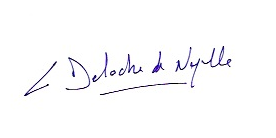 L Deloche de Noyelle